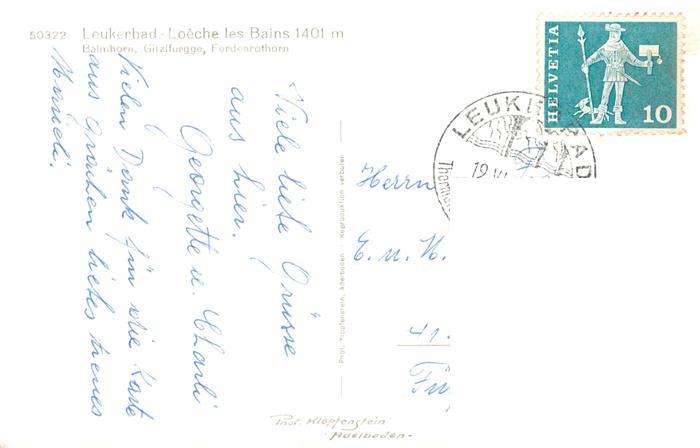 50322 Leukerbad - Loèche les Bains 1401 m
Balmhorn, Gitzifurgge, Ferdenrothorn
HELVETIA
10
LEUKERBAD
19 VI
Viele liebe Grüsse
aus hier.
Georgette u. Charli
Vielen Dank für die Karte
aus
liebes treues
Herrn
E. u. H.
41
Phot. Klopfenstein, Adelboden - Reproduktion verboten
Phot. Klopfenstein
- Adelboden -